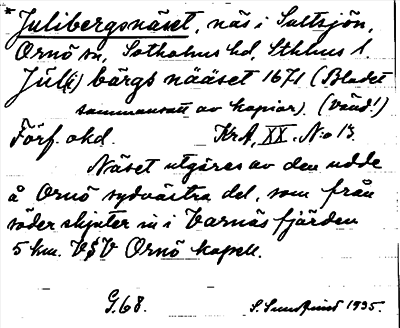 * Julibergsnäset, näs i Saltsjön,
Ornö sn, Sotholms hd, Sthlms l.
Jul(i) bärgs nääset 1671 (Bladet
sammansatt av kopior). (Vänd!)
Förf. okd. KrA, XX. No 13.
Näset utgöres av den udde
å Ornö sydvästra del, som från
söder skjuter in i Varnäs fjärden
5 km. VSV Ornö kapell.
G.68. S. 1935.